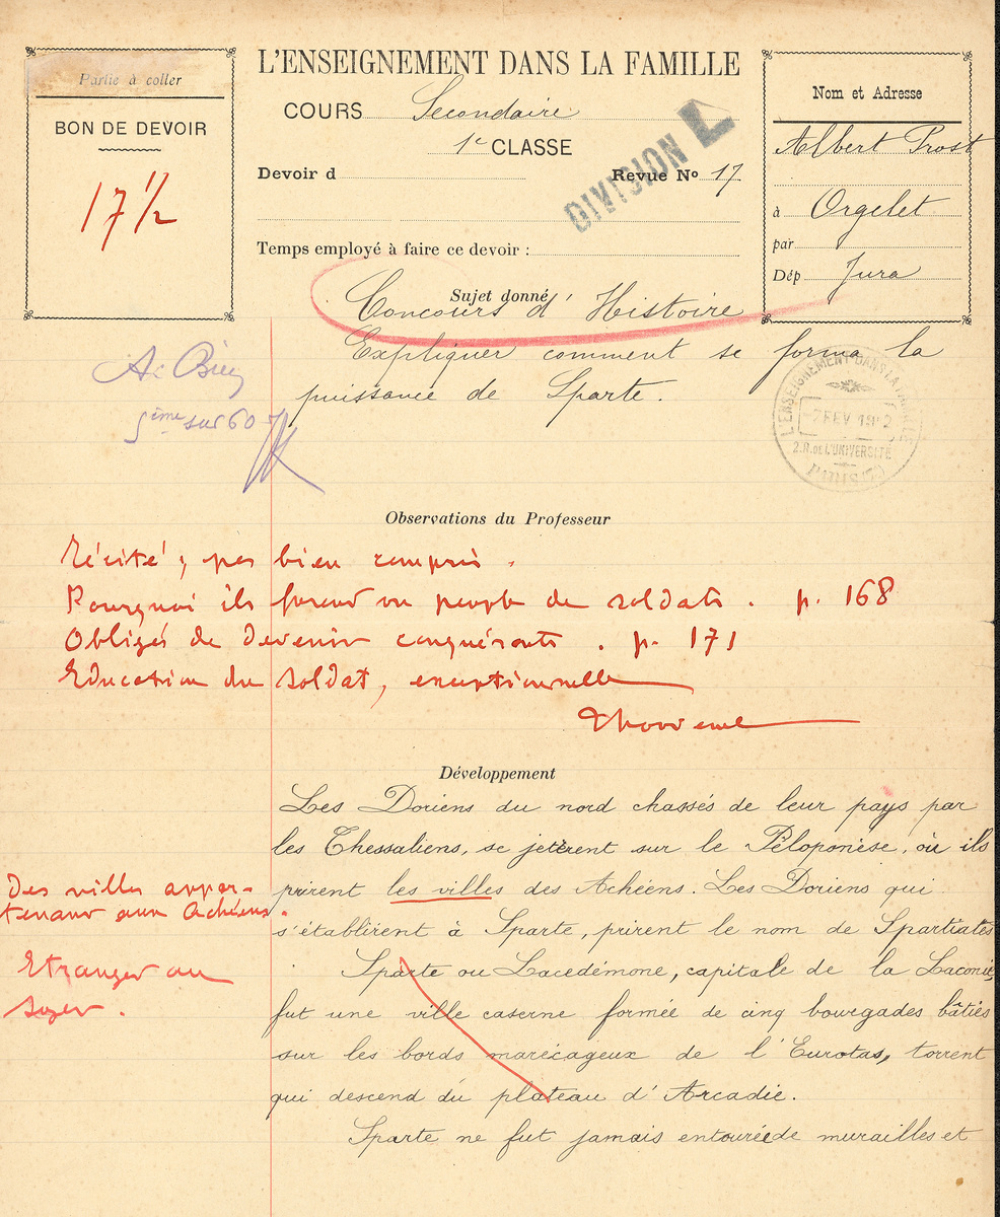 Partie à coller
BON DE DEVOIR
17 1/2
L'ENSEIGNEMENT DANS LA FAMILLE
COURS Secondaire
1e CLASSE
Devoir d
Revue No 17
DIVISION L
Temps employé à faire ce devoir :
Nom et Adresse
Albert Prost
à Orgelet
par
Dép Jura
Sujet donné
Concours d'Histoire
Expliquer comment se forma la
puissance de Sparte.
5ème sur 60
L'ENSEIGNEMENT DANS LA FAMILLE
FEV
2.R. DE L'UNIVERSITÉ
PARIS
Observations du Professeur
Récité, pas bien compris.
Pourquoi ils furent un peuple de soldats. p. 168
Obligés de devenir conquérants. p. 171
Education du soldat, exceptionnelle
Développement
Les Doriens du nord chassés de leur pays par
les Thessaliens, se jetèrent sur le Péloponèse, où ils
prirent les villes des Achéens. Les Doriens qui
s'établirent à Sparte, prirent le nom de Spartiates
Sparte ou Lacedémone, capitale de la Laconie,
fut une ville caserne formée de cinq bourgades bâties
sur les bords marécageux de l'Eurotas, torrent
qui descend du plateau d'Arcadie.
Sparte ne fut jamais entourée de murailles et
Des villes appar-
tenant aux Achéens.
Etranger au
sujet.